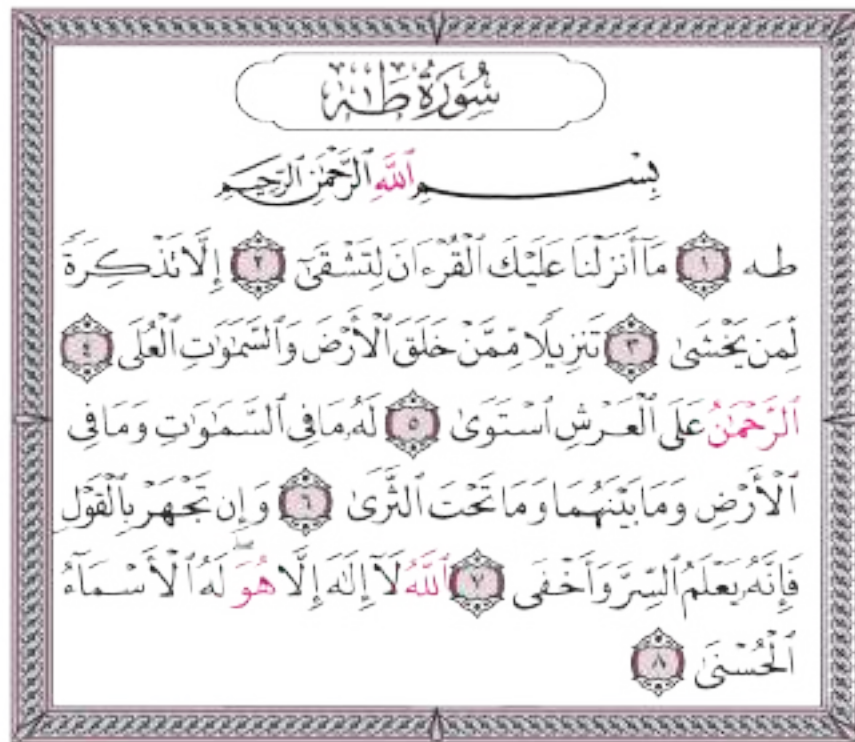 سُورَةُ طٰهٰ
بِسْمِ ٱللَّهِ ٱلرَّحْمَٰنِ ٱلرَّحِيمِ
طه ١ مَآ أَنزَلْنَا عَلَيْكَ ٱلْقُرْءَانَ لِتَشْقَىٰٓ ٢ إِلَّا تَذْكِرَةً
لِّمَن يَخْشَىٰ ٣ تَنزِيلًا مِّمَّنْ خَلَقَ ٱلْأَرْضَ وَٱلسَّمَٰوَٰتِ ٱلْعُلَى ٤
ٱلرَّحْمَٰنُ عَلَى ٱلْعَرْشِ ٱسْتَوَىٰ ٥ لَهُۥ مَا فِى ٱلسَّمَٰوَٰتِ وَمَا فِى
ٱلْأَرْضِ وَمَا بَيْنَهُمَا وَمَا تَحْتَ ٱلثَّرَىٰ ٦ وَإِن تَجْهَرْ بِٱلْقَوْلِ
فَإِنَّهُۥ يَعْلَمُ ٱلسِّرَّ وَأَخْفَى ٧ ٱللَّهُ لَآ إِلَٰهَ إِلَّا هُوَ ۖ لَهُ ٱلْأَسْمَآءُ
ٱلْحُسْنَىٰ ٨